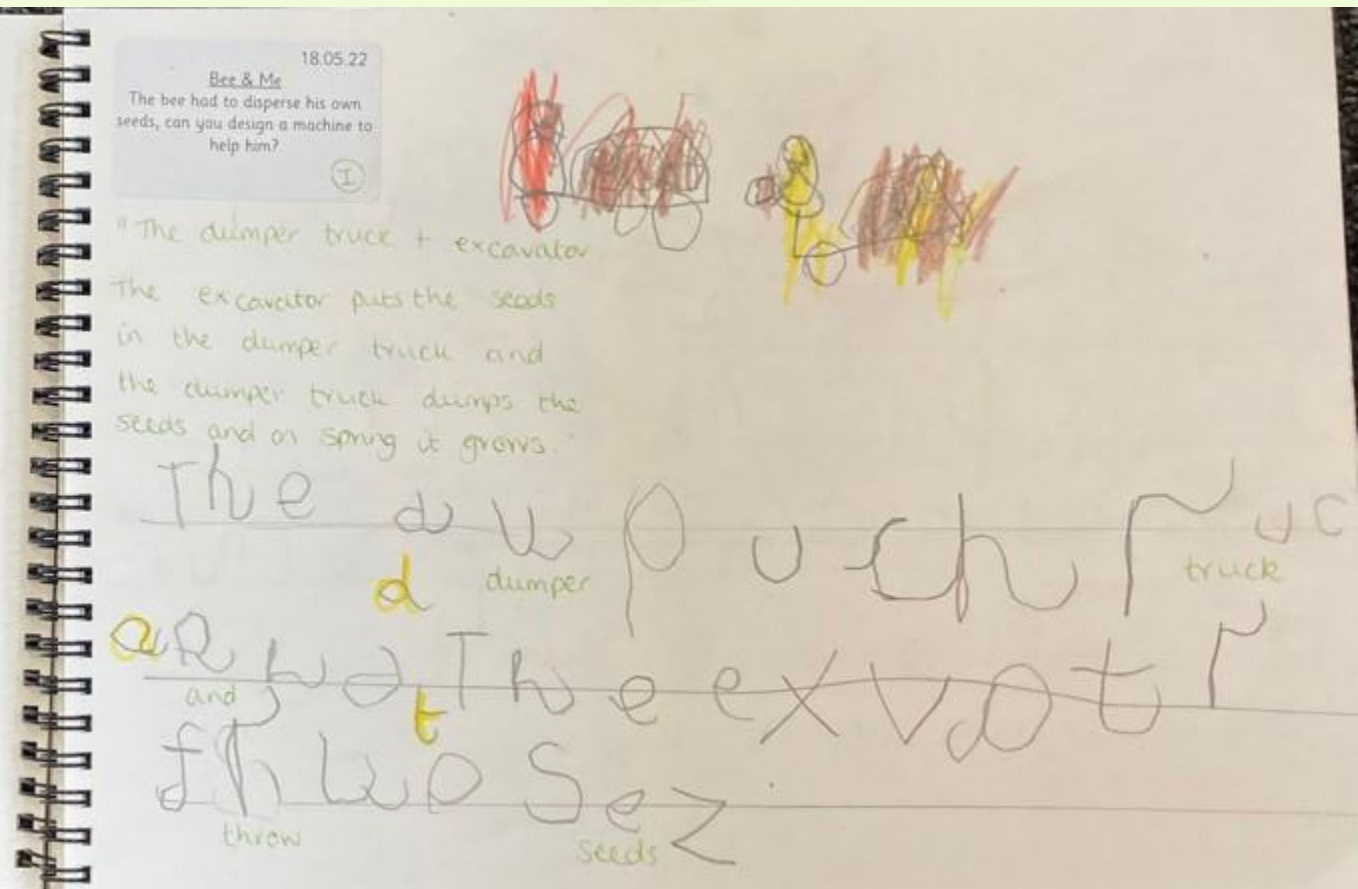 18.05.22
Bee & Me
The bee had to disperse his own
seeds, can you design a machine to
help him?
I
"The dumper truck + excavator
The excavator puts the seeds
in the dumper truck and
the dumper truck dumps the
seeds and on spring it grows."
The
d dumper truck
and The exvatr
t
throw seeds
Sez